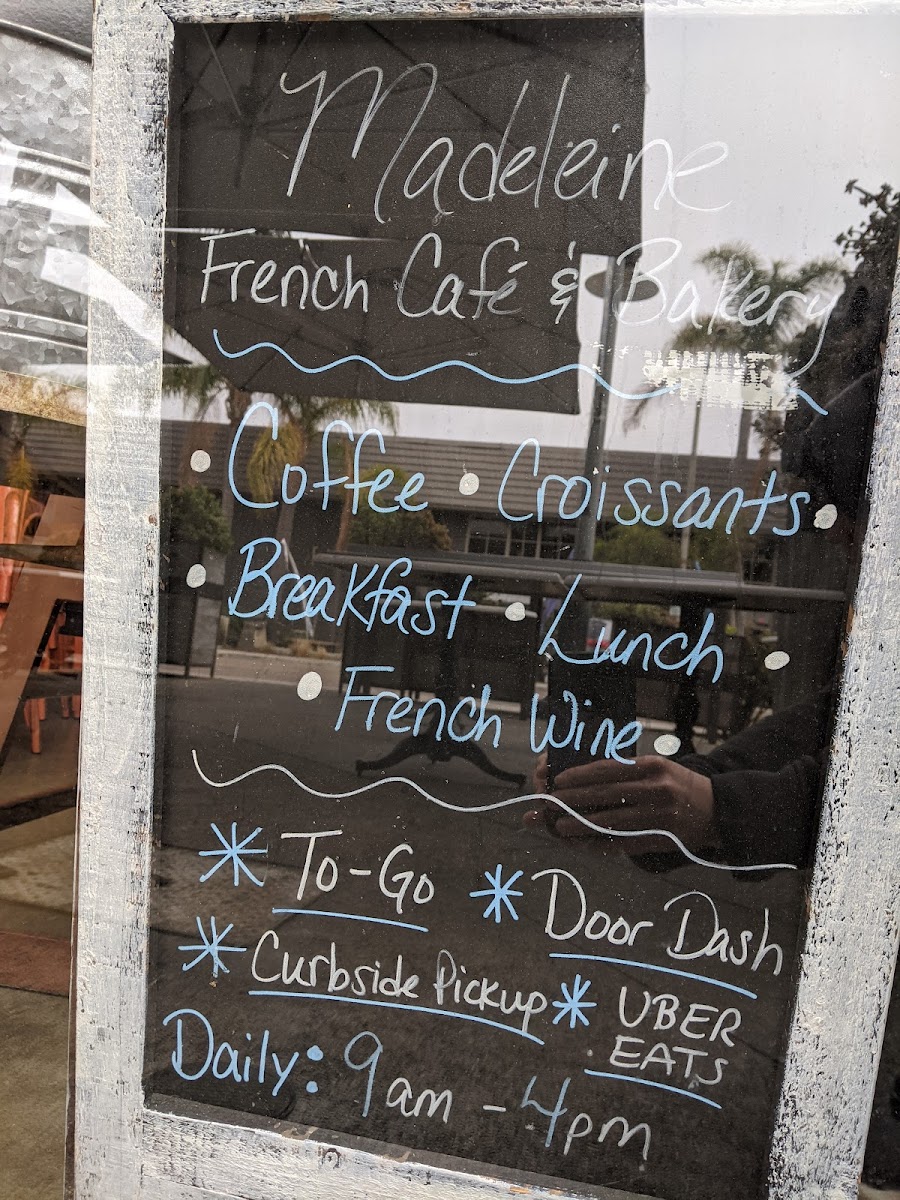 Madeleine
French Café & Bakery
• Coffee • Croissants •
• Breakfast • Lunch •
• French Wine •
* To-Go * Door Dash
* Curbside Pickup * UBER
EATS
Daily: 9am - 4pm